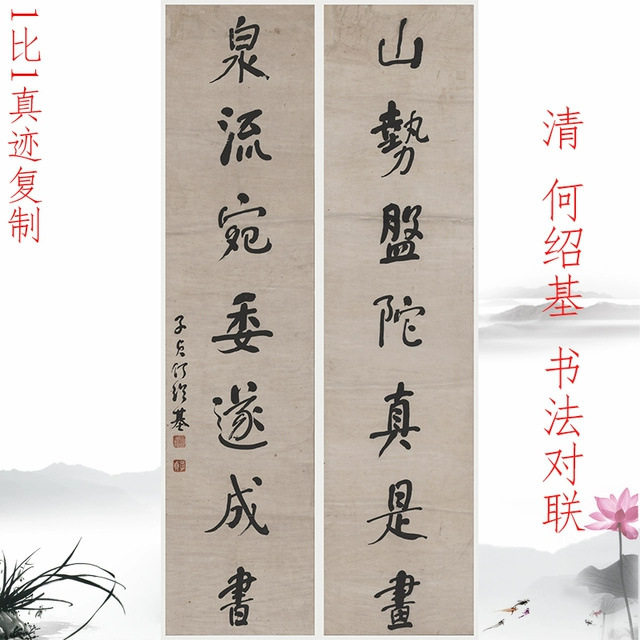 1比1真迹复制
清 何绍基 书法对联
山勢盤陀真是畫
泉流宛委遂成書
子贞何绍基